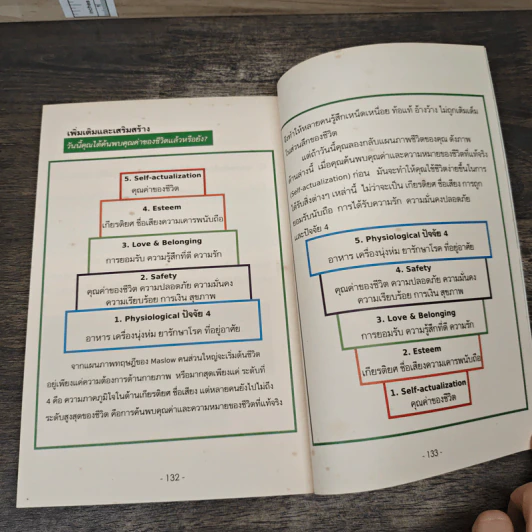 เพิ่มเติมและเสริมสร้าง
วันนี้คุณได้ค้นพบคุณค่าของชีวิตแล้วหรือยัง?
5. Self-actualization
คุณค่าของชีวิต
4. Esteem
เกียรติยศ ชื่อเสียงความเคารพนับถือ
3. Love & Belonging
การยอมรับ ความรู้สึกที่ดี ความรัก
2. Safety
คุณค่าของชีวิต ความปลอดภัย ความมั่นคง
ความเรียบร้อย การเงิน สุขภาพ
1. Physiological ปัจจัย 4
อาหาร เครื่องนุ่งห่ม ยารักษาโรค ที่อยู่อาศัย
จากแผนภาพทฤษฎีของ Maslow คนส่วนใหญ่จะเริ่มต้นชีวิต
อยู่เพียงแค่ความต้องการด้านกายภาพ หรือมากสุดเพียงแค่ ระดับที่
4 คือ ความภาคภูมิใจในด้านเกียรติยศ ชื่อเสียง แต่หลายคนยังไปไม่ถึง
ระดับสูงสุดของชีวิต คือการค้นพบคุณค่าและความหมายของชีวิตที่แท้จริง
- 132 -
จึงทำให้หลายคนรู้สึกเหน็ดเหนื่อย ท้อแท้ อ้างว้าง ไม่ถูกเติมเต็ม
ในส่วนลึกของชีวิต
แต่ถ้าวันนี้คุณลองกลับแผนภาพชีวิตของคุณ ดังภาพ
ด้านล่างนี้ เมื่อคุณค้นพบคุณค่าและความหมายของชีวิตที่แท้จริง
(Self-actualization) ก่อน มันจะทำให้คุณใช้ชีวิตง่ายขึ้นในการ
ได้รับสิ่งต่างๆ เหล่านี้ ไม่ว่าจะเป็น เกียรติยศ ชื่อเสียง การถูก
ยอมรับนับถือ การได้รับความรัก ความมั่นคงปลอดภัย
และปัจจัย 4
5. Physiological ปัจจัย 4
อาหาร เครื่องนุ่งห่ม ยารักษาโรค ที่อยู่อาศัย
4. Safety
คุณค่าของชีวิต ความปลอดภัย ความมั่นคง
ความเรียบร้อย การเงิน สุขภาพ
3. Love & Belonging
การยอมรับ ความรู้สึกที่ดี ความรัก
2. Esteem
เกียรติยศ ชื่อเสียงความเคารพนับถือ
1. Self-actualization
คุณค่าของชีวิต
- 133 -